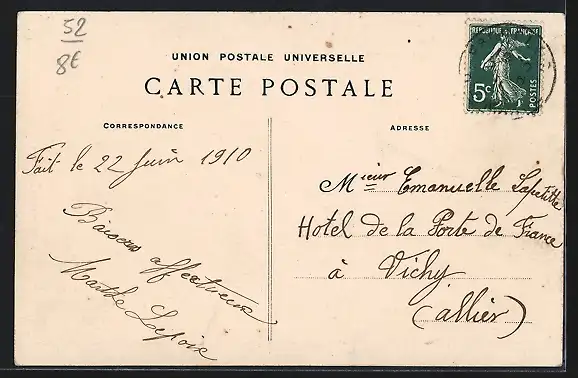 52
8€
UNION POSTALE UNIVERSELLE
CARTE POSTALE
REPUBLIQUE FRANÇAISE
5c
POSTES
CORRESPONDANCE
ADRESSE
Fait le 22 Juin 1910
Baisers affectueux
Marthe Lapoix
Mieur Emanuelle Lapetitte
Hotel de la Porte de France
à Vichy
(allier)